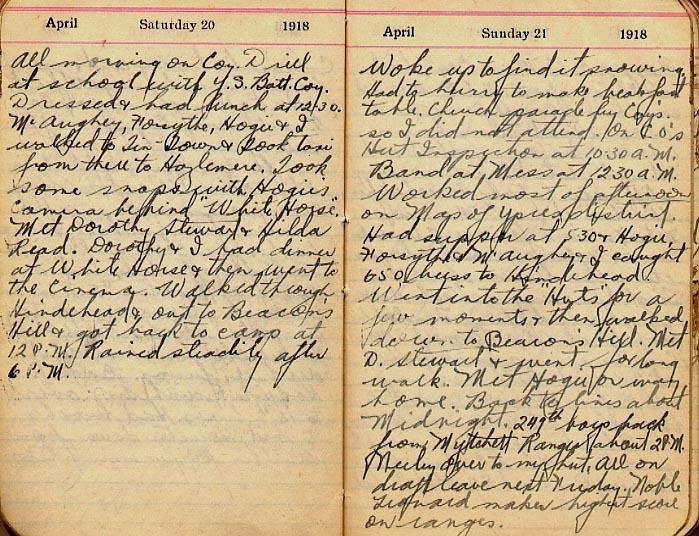 April Saturday 20 1918
All morning on Coy. Drill
at school with Y.S. Batt. Coy.
Dressed & had lunch at 12.30.
McAughey, Forsythe, Hogue & I
walked to Tin Town & took taxi
from there to Hazlemere. Took
some snaps with Hogue's
camera behind "White Horse".
Met Dorothy Stewart & Hilda
Read. Dorothy & I had dinner
at White Horse & then went to
the Cinema. Walked through
Hindehead & out to Beacon's
Hill & got back to camp at
12 P.M. Rained steadily after
6 P.M.
April Sunday 21 1918
Woke up to find it snowing.
Had to hurry to make breakfast
table. Church parade for Coys.
so I did not attend. On C.O's
Hut Inspection at 10.30 A.M.
Band at Mess at 12.30 A.M.
Worked most of afternoon
on Map of Ypres district.
Had supper at 5.30 & Hogue,
Forsythe & McAughey & I caught
6.50 buss to Hindehead.
Went into the "Huts" for a
few moments & then walked
down to Beacon's Hill. Met
D. Stewart & went for long
walk. Met Hogue on way
home. Back to lines about
Midnight. 249th boys back
from Mytchett Ranges about 2 P.M.
over to my hut. All on
draft leave next Friday. Noble
makes highest score
on ranges.